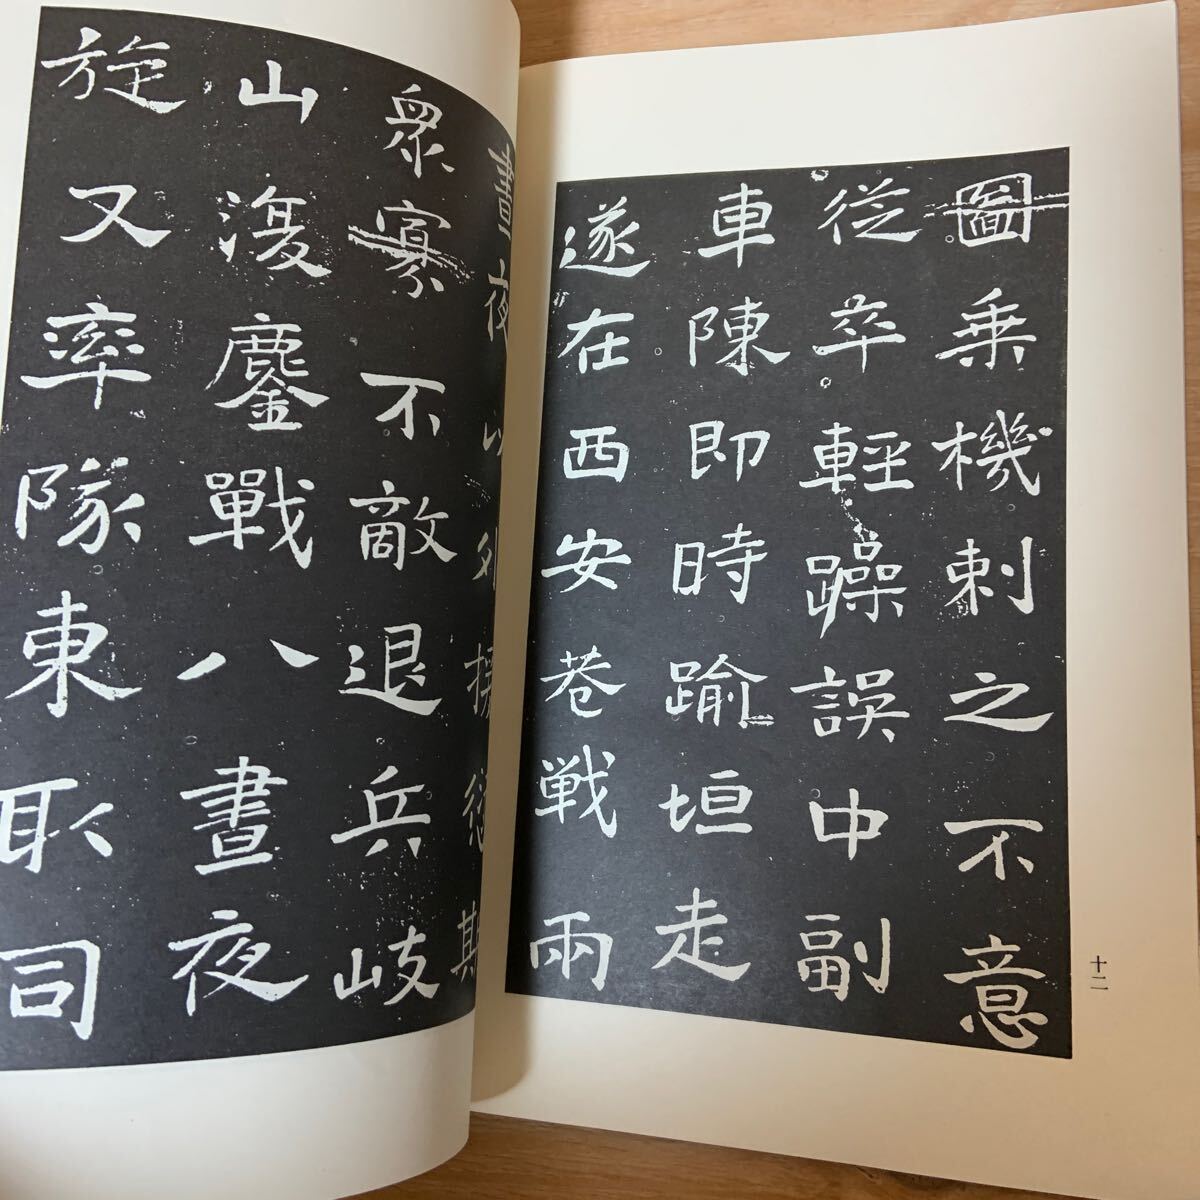 圖乗機刺之不意
従卒輕躁誤中副
車陳即時踰垣走
遂在西安巷戦兩
書夜以外援
衆寡不敵退兵岐
山澓鏖戰八晝夜
旋又率隊東取司
十二